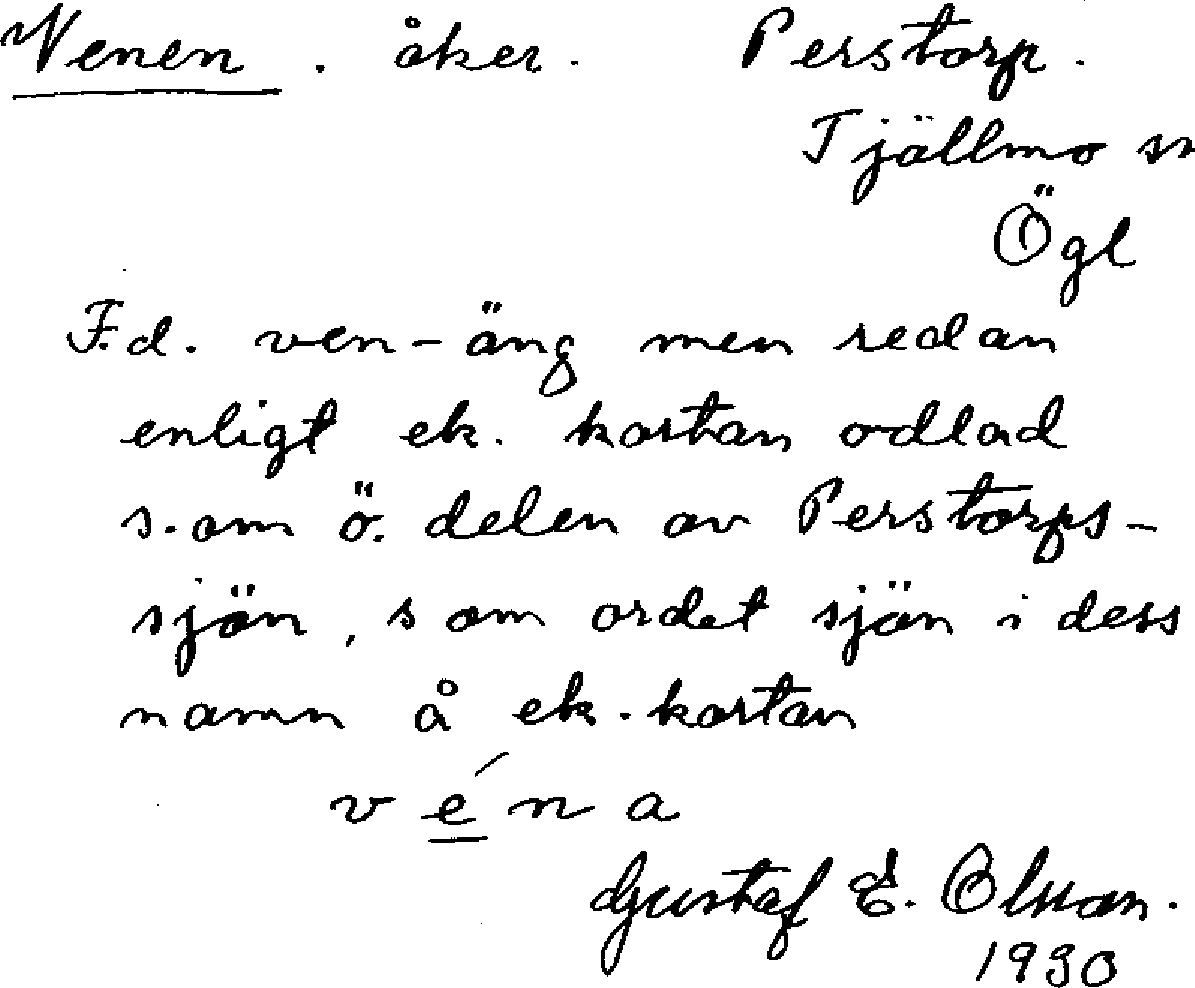 Venen. åker. Perstorp.
Tjällmo sn
Ögl
F.d. ven-äng men redan
enligt ek. kartan odlad
s.om ö. delen av Perstorps-
sjön, som ordet sjön i dess
namn å ek.kartan
véna
Gustaf E. Olsson.
1930